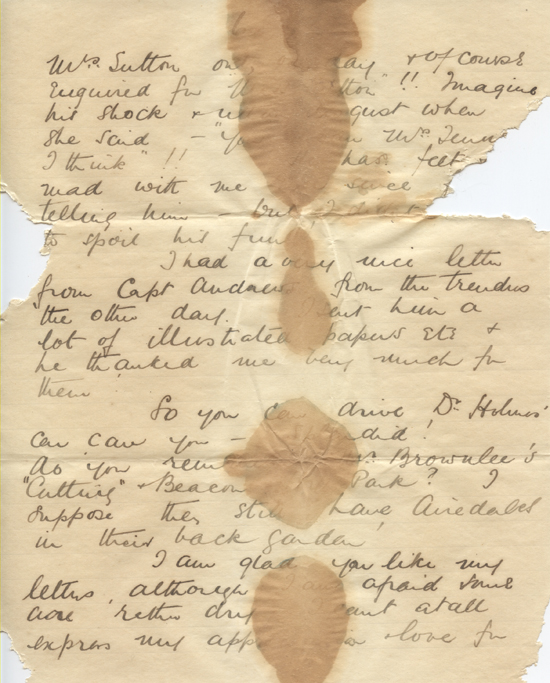 Mrs Sutton one day & of course
Enquired for "!! Imagine
his shock & disgust when
she said - Mrs
I think" !! has felt
mad with me since
telling him - but I didn't
to spoil his fun
I had a very nice letter
from Capt Andrews from the trenches
the other day. I sent him a
lot of illustrated papers etc &
he thanked me very much for
them!
So you can drive Dr Holmes'
car can you - Splendid!
do you Brownlee's
"Cutting" & Beacon Park? I
suppose they still have Airedales
in their back garden!
I am glad you like my
letters, although I am afraid some
are rather dry cant at all
express my & love for